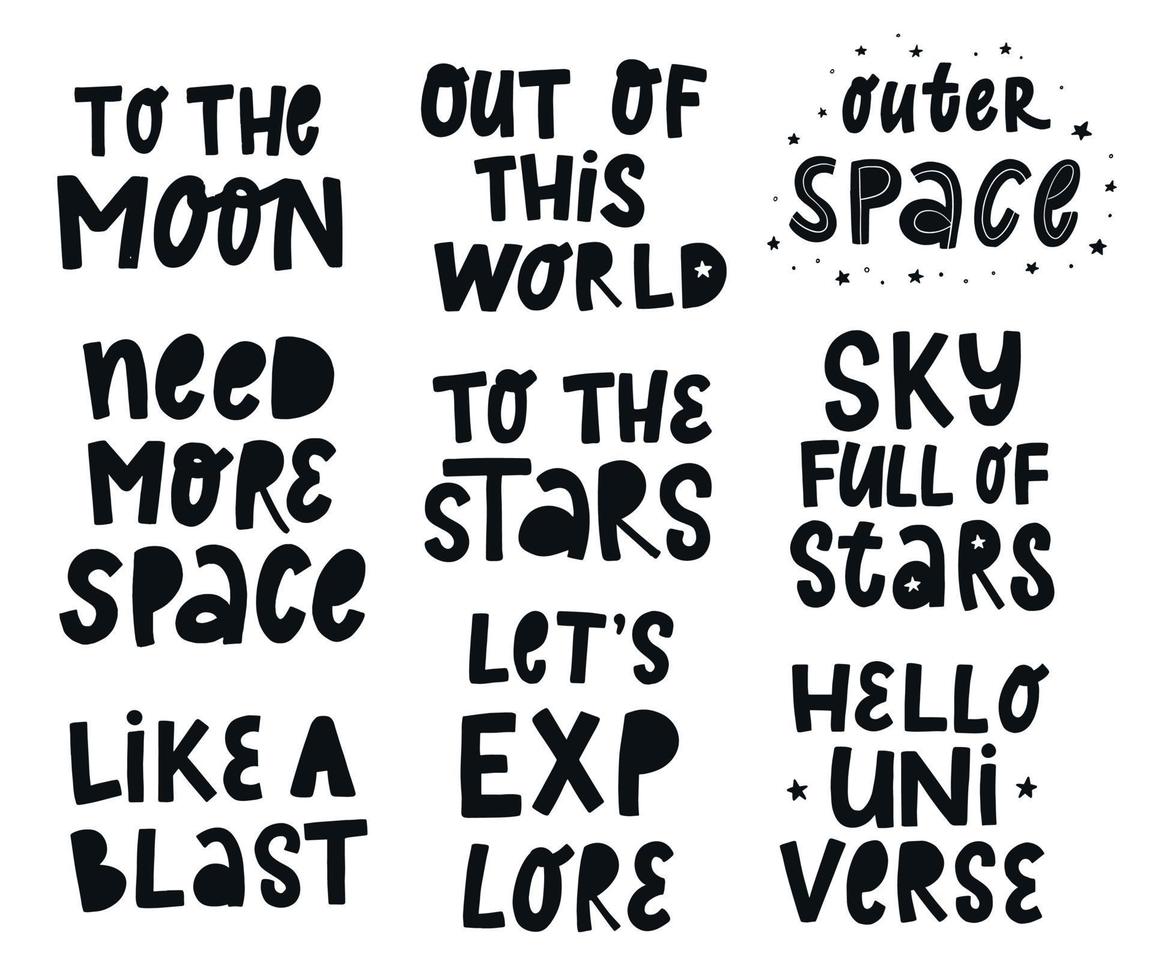 TO THe
MOON
OUT OF
THiS
WORLD
OuteR
SPace
NeeD
MORE
SPace
TO THE
STaRS
SKY
FULL OF
StaRS
LiKE A
BLaST
LeT'S
EXP
LORE
HELLO
UNi
VeRSE